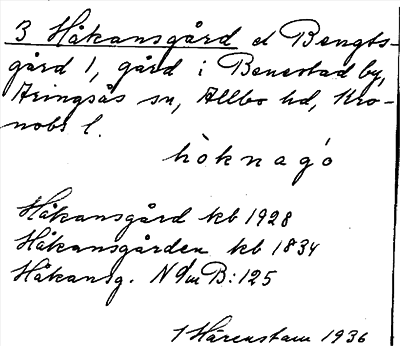 3 Håkansgård el Bengts-
gård 1, gård i Benestad by,
Aringsås sn, Allbo hd, Kro-
nobs l.
hòknagó
Håkansgård kb 1928
Håkansgården kb 1834
Håkansg. N B:125
1 Härenstam 1936